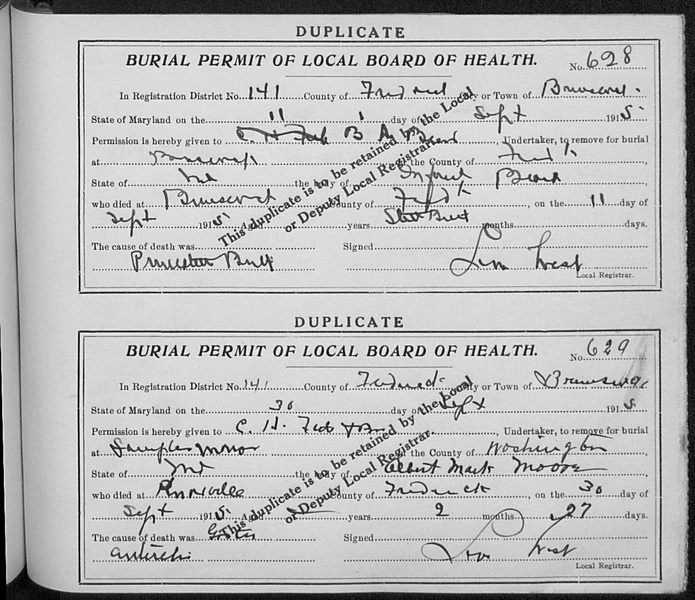 DUPLICATE
BURIAL PERMIT OF LOCAL BOARD OF HEALTH.
No. 628
In Registration District No. 141 County of City or Town of
State of Maryland on the 11 day of Sept 1915
Permission is hereby given to Undertaker, to remove for burial
at in the County of Fredk
State of Md the body of Infant
who died at County of Fredk, on the 11 day of
Sept 1915. years months days.
The cause of death was Signed
Premature Birth Levin West
Local Registrar.
This duplicate is to be retained by the Local
or Deputy Local Registrar.
DUPLICATE
BURIAL PERMIT OF LOCAL BOARD OF HEALTH.
No. 629
In Registration District No. 141 County of Frederick City or Town of Brunswick
State of Maryland on the 30 day of Sept 1915.
Permission is hereby given to C. H. Undertaker, to remove for burial
at Samples Manor in the County of Washington
State of Md the body of Albert Mark Moore
who died at Knoxville County of Frederick, on the 30 day of
Sept 1915. Aged years 2 months 27 days.
The cause of death was Signed
Levin West
Local Registrar.
This duplicate is to be retained by the Local
or Deputy Local Registrar.